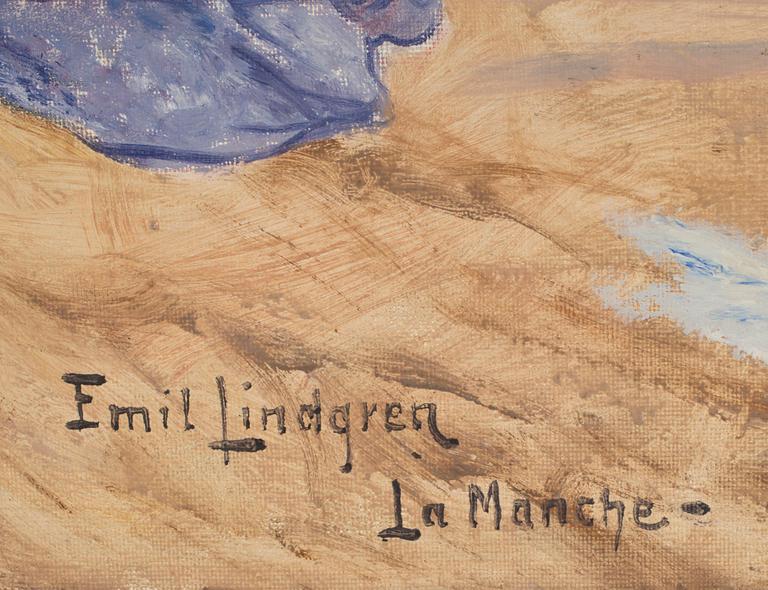 Emil Lindgren
La Manche -